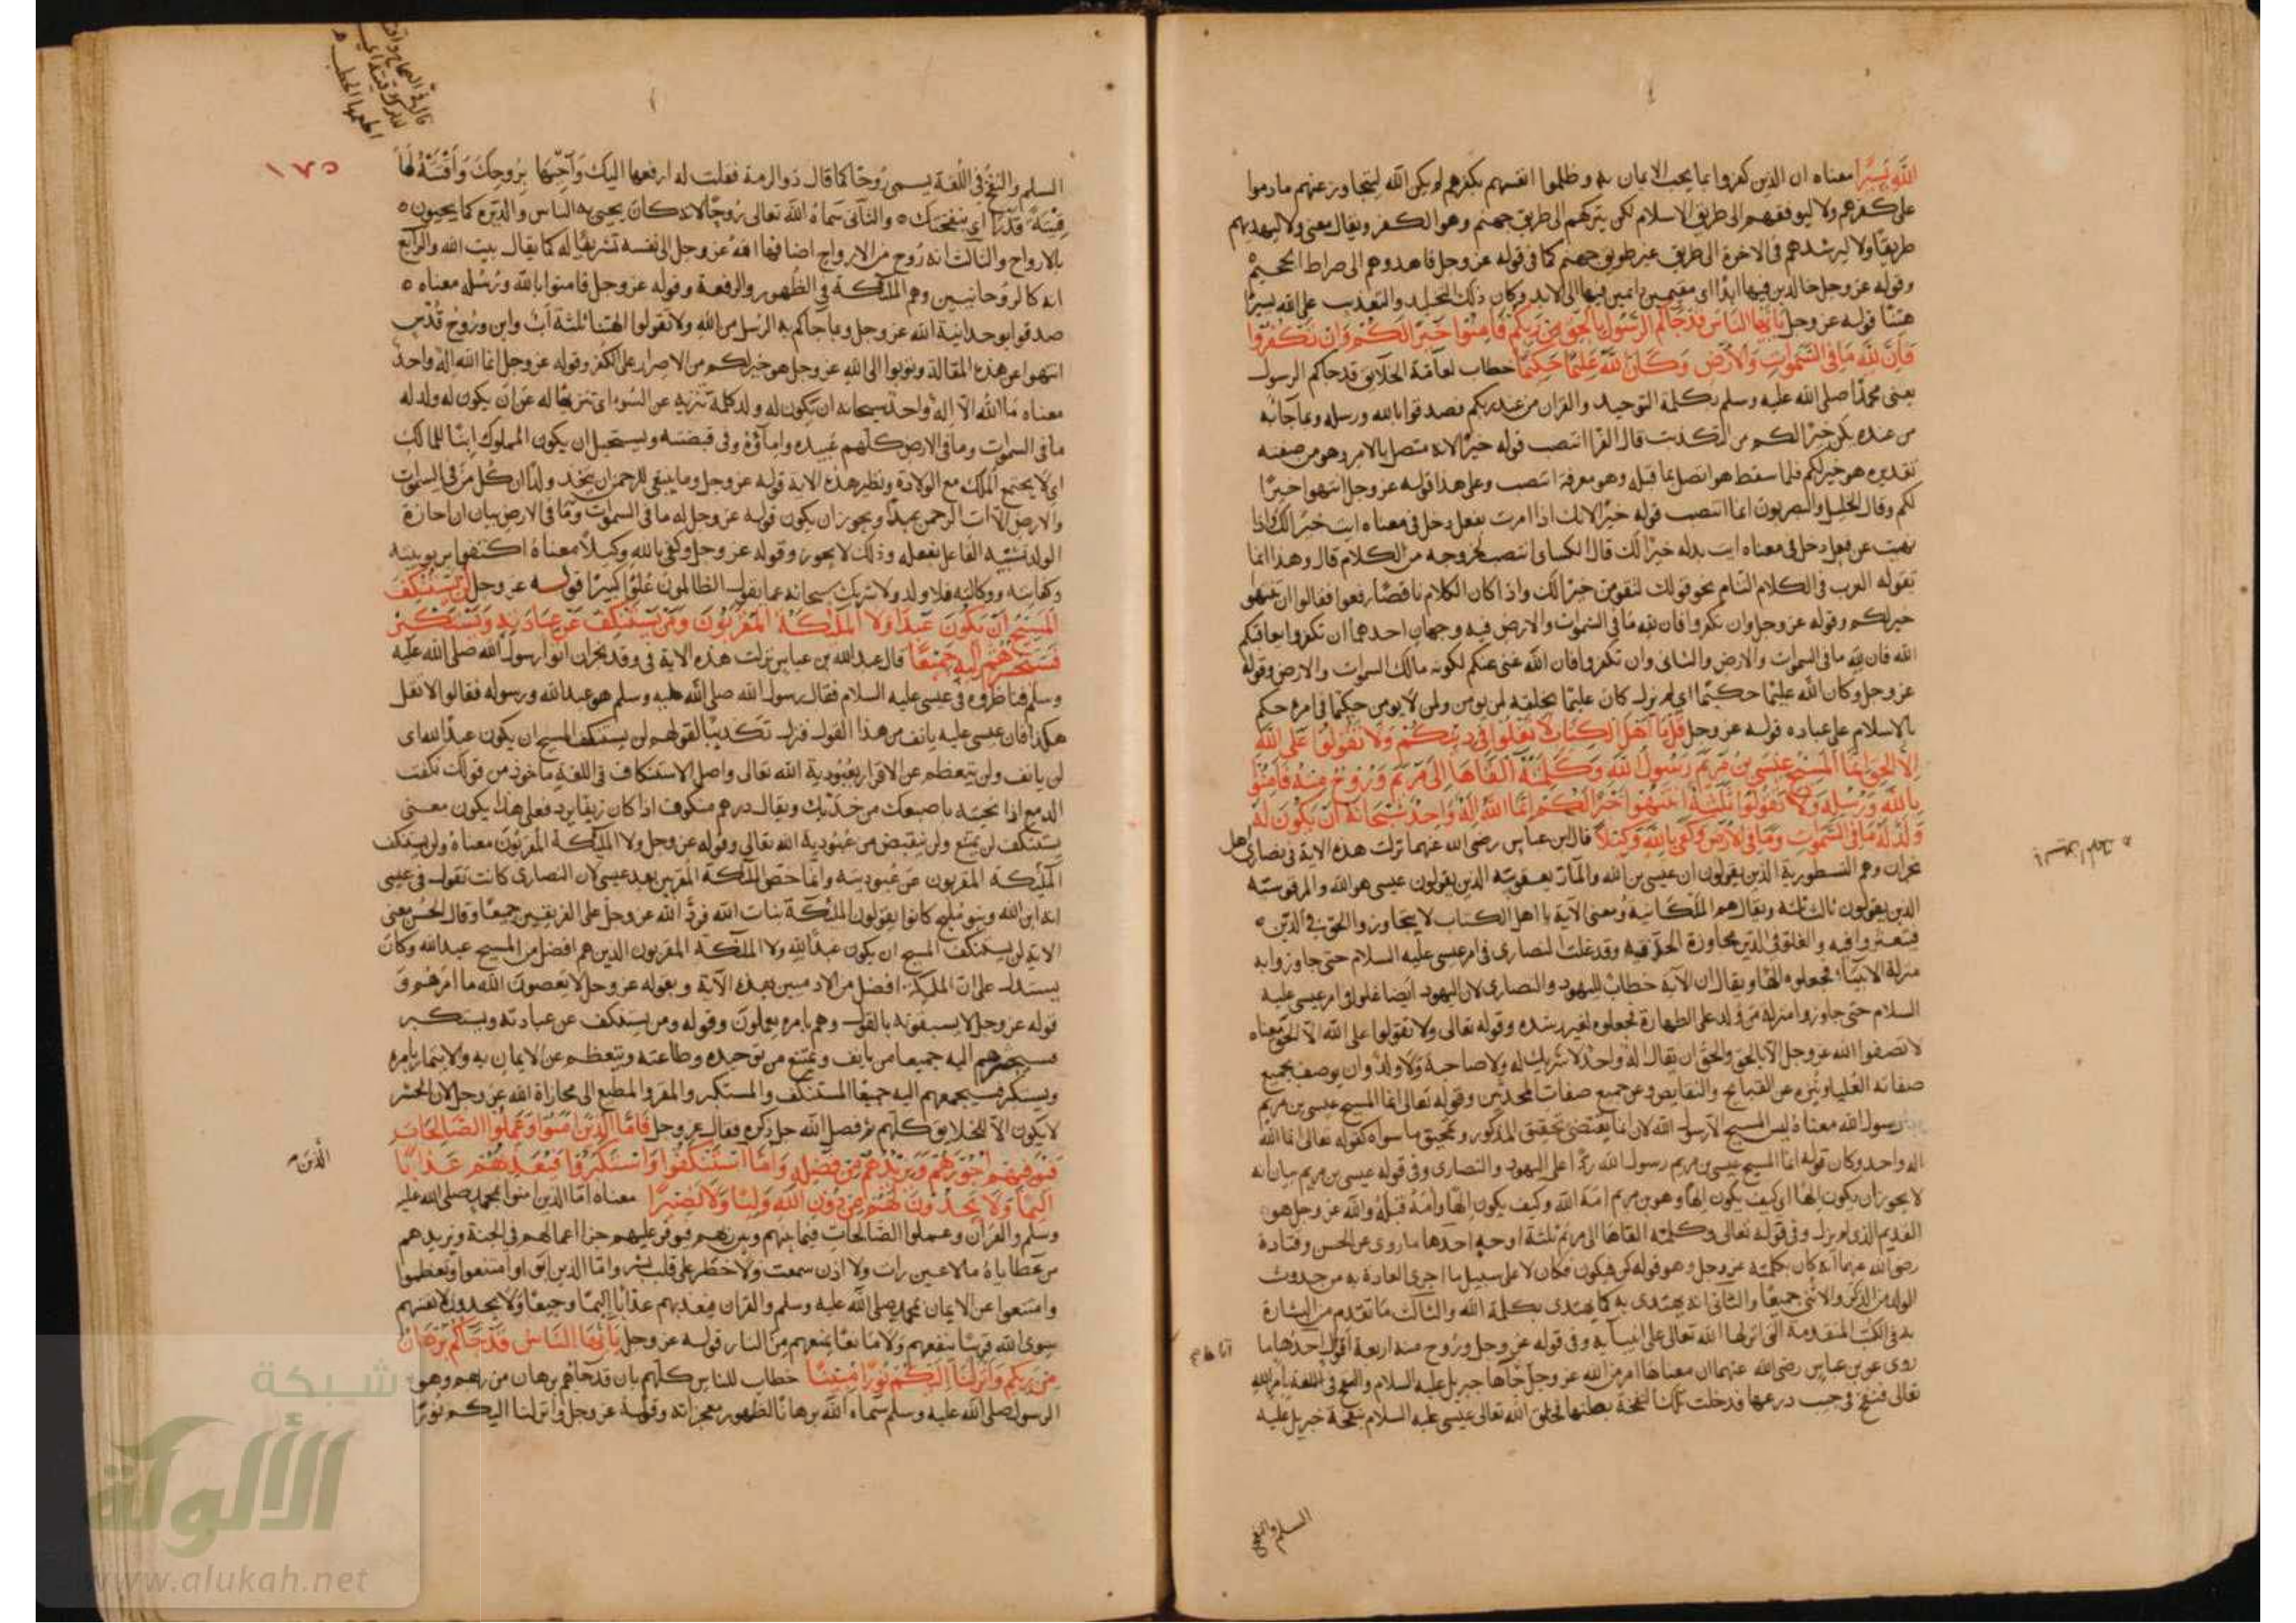 الله يسيرا معناه ان الذين كفروا بما يجب الايمان به وظلموا انفسهم بكفرهم لم يكن الله ليتجاوز عنهم ما داموا
على كفرهم ولا ليوفقهم الى طريق الاسلام لكن يتركهم الى طريق جهنم وهو الكفر ويقال معنى ولا ليهديهم
طريقا ولا ليرشدهم في الاخرة الى طريق غير طريق جهنم كما في قوله عز وجل فاهدوهم الى صراط الجحيم
وقوله عز وجل خالدين فيها ابدا اى مقيمين دائمين فيها الى الابد وكان ذلك التخليد والتعذيب على الله يسيرا
هينا قوله عز وجل يا ايها الناس قد جاكم الرسول بالحق من ربكم فامنوا خيرا لكم وان تكفروا
فان لله ما في السموات والارض وكان الله عليما حكيما خطاب لعامة الخلائق قد جاكم الرسول
يعنى محمدا صلى الله عليه وسلم بكلمة التوحيد والقران من عند ربكم فصدقوا بالله ورسله وبما جاكم به
من عنده يكن خيرا لكم من التكذيب قال الفرا انتصب قوله خيرا لانه متصل بالامر وهو من صفته
تقديره هو خير لكم فلما سقط هو اتصل بما قبله وهو معرفة انتصب وعلى هذا قوله عز وجل انتهوا خيرا
لكم وقال الخليل والبصريون انما انتصب قوله خيرا لانك اذا امرت بفعل دخل في معناه ايت خيرا لك واذا
نهيت عن فعل دخل في معناه ايت بدله خيرا لك قال الكسائى انتصب لخروجه من الكلام قال وهذا انما
تقوله العرب في الكلام التام نحو قولك لتقومن خيرا لك واذا كان الكلام ناقصا رفعوا فقالوا ان تنتهوا
خير لكم وقوله عز وجل وان تكفروا فان لله ما في السموات والارض فيه وجهان احدهما ان تكفروا يعاقبكم
الله فان لله ما في السموات والارض والثانى وان تكفروا فان الله غنى عنكم لكونه مالك السموات والارض وقوله
عز وجل وكان الله عليما حكيما اى لم يزل كان عليما بخلقه لمن يومن ولمن لا يومن حكيما في امره حكم
بالاسلام على عباده قوله عز وجل قل يا اهل الكتاب لا تغلوا في دينكم ولا تقولوا على الله
الا الحق انما المسيح عيسى بن مريم رسول الله وكلمته القاها الى مريم وروح منه فامنوا
بالله ورسله ولا تقولوا ثلثة انتهوا خيرا لكم انما الله اله واحد سبحانه ان يكون له
ولد له ما في السموات وما في الارض وكفى بالله وكيلا قال ابن عباس رضى الله عنهما نزلت هذه الاية في نصارى اهل
نجران وهم النسطورية الذين يقولون ان عيسى بن الله والمار يعقوبية الذين يقولون عيسى هو الله والمرقوسية
الذين يقولون ثالث ثلثة ويقال هم الملكانية ومعنى الآية يا اهل الكتاب لا تجاوزوا الحق في الدين
فتعثروا فيه والغلو في الدين مجاوزة الحد فيه وقد غلت النصارى في امر عيسى عليه السلام حتى جاوزوا به
منزلة الانبيا فجعلوه الها ويقال ان الآية خطاب لليهود والنصارى لان اليهود ايضا غلوا في امر عيسى عليه
السلام حتى جاوزوا منزلة من ولد على الطهارة فجعلوه لغير رشده وقوله تعالى ولا تقولوا على الله الا الحق معناه
لا تصفوا الله عز وجل الا بالحق والحق ان يقال اله واحد لا شريك له ولا صاحبة ولا ولد وان يوصف بجميع
صفاته العليا وينزه عن القبائح والنقايص وعن جميع صفات المحدثين وقوله تعالى انما المسيح عيسى بن مريم
رسول الله معناه ليس المسيح الا رسول الله لان انما يقتضى تحقيق المذكور وتمحيق ما سواه كقوله تعالى انما الله
اله واحد وكان قوله انما المسيح عيسى بن مريم رسول الله ردا على اليهود والنصارى وفي قوله عيسى بن مريم بيان انه
لا يجوز ان يكون الها اى كيف يكون الها وهو بن مريم امة الله وكيف يكون الها وامه قبله والله عز وجل هو
القديم الذى لم يزل وفي قوله تعالى وكلمته القاها الى مريم ثلثة اوجه احدها ما روى عن الحسن وقتادة
رضى الله عنهما انه كان بكلمته عز وجل وهو قوله كن فيكون فكان لا على سبيل ما اجرى العادة به من حدوث
الولد من الذكر والانثى جميعا والثانى انه يهتدى به كما يهتدى بكلمة الله والثالث ما تقدم من البشارة
به في الكتب المتقدمة التى انزلها الله تعالى على انبيايه وفي قوله عز وجل وروح منه اربعة اقوال احدها ما
روى عن بن عباس رضى الله عنهما ان معناها امر من الله عز وجل اتاها جبريل عليه السلام والنفخ في اللغة بامر الله
تعالى فنفخ في جيب درعها فدخلت تلك النفخة بطنها فخلق الله تعالى عيسى عليه السلام بنفخة جبريل عليه
السلم والنفخ
السلم والنفخ في اللغة يسمى روحا كما قال ذو الرمة فقلت له ارفعها اليك واحيها بروحك واقتته لها
قيتة قدرا اى بنفختك والثانى سماه الله تعالى روحا لانه كان يحيى به الناس والدين كما يحيون
بالارواح والثالث انه روح من الارواح اضافها الله عز وجل الى نفسه تشريفا له كما يقال بيت الله والرابع
انه كالروحانيين وهم الملئكة في الظهور والرفعة وقوله عز وجل فامنوا بالله ورسله معناه
صدقوا بوحدانية الله عز وجل وبما جاكم به الرسل من الله ولا تقولوا الهتنا ثلثة اب وابن وروح قدس
انتهوا عن هذه المقالة وتوبوا الى الله عز وجل هو خير لكم من الاصرار على الكفر وقوله عز وجل انما الله اله واحد
معناه ما الله الا اله واحد سبحانه ان يكون له ولد كلمة تنزيه عن السوء اى تنزيها له عن ان يكون له ولد له
ما في السموات وما في الارض كلهم عبيده واماؤه وفي قبضته ويستحيل ان يكون المملوك ابنا للمالك
اى لا يجتمع الملك مع الولادة ونظير هذه الاية قوله عز وجل وما ينبغى للرحمن ان يتخذ ولدا ان كل من في السموات
والارض الا ات الرحمن عبدا ويجوز ان يكون قوله عز وجل له ما في السموات وما في الارض بيان ان اجازة
الولد تشبيه الفاعل بفعله وذلك لا يجوز وقوله عز وجل وكفى بالله وكيلا معناه اكتفوا بربوبيته
وكفايته ووكالته فلا ولد ولا شريك سبحانه عما يقول الظالمون علوا كبيرا قوله عز وجل لن يستنكف
المسيح ان يكون عبدا لله ولا الملئكة المقربون ومن يستنكف عن عبادته ويستكبر
فسيحشرهم اليه جميعا قال عبد الله بن عباس نزلت هذه الاية في وفد نجران اتوا رسول الله صلى الله عليه
وسلم فناظروه في عيسى عليه السلام فقال رسول الله صلى الله عليه وسلم هو عبد الله ورسوله فقالوا لا تقل
هكذا فان عيسى عليه يانف من هذا القول فنزل تكذيبا لقولهم لن يستنكف المسيح ان يكون عبدا لله اى
لن يانف ولن يتعظم عن الاقرار بعبودية الله تعالى واصل الاستنكاف في اللغة ماخوذ من قولك نكفت
الدمع اذا نحيته باصبعك من خديك ويقال درهم منكوف اذا كان زيفا يرد فعلى هذا يكون معنى
يستنكف لن يمتنع ولن ينقبض من عبودية الله تعالى وقوله عز وجل ولا الملئكة المقربون معناه ولن يستنكف
الملئكة المقربون عن عبوديته وانما خص الملئكة المقربين بعد عيسى لان النصارى كانت تقول في عيسى
انه ابن الله وبنو مليح كانوا يقولون الملئكة بنات الله فرد الله عز وجل على الفريقين جميعا وقال الحسن معنى
الاية لن يستنكف المسيح ان يكون عبدا لله ولا الملئكة المقربون الذين هم افضل من المسيح عبد الله وكان
يستدل على ان الملئكة افضل من الادميين بهذه الآية وبقوله عز وجل لا يعصون الله ما امرهم و
قوله عز وجل لا يسبقونه بالقول وهم بامره يعملون وقوله ومن يستنكف عن عبادته ويستكبر
فسيحشرهم اليه جميعا من يانف ويمتنع من توحيده وطاعته ويتعظم عن الايمان به والايتمار بامره
ويستكبر فسيجمعهم اليه جميعا المستنكف والمستكبر والمقر والمطيع الى مجازاة الله عز وجل لان الحشر
لا يكون الا للخلايق كلهم ثم فصل الله جل ذكره فقال عز وجل فاما الذين امنوا وعملوا الصالحات
فيوفيهم اجورهم ويزيدهم من فضله واما استنكفوا واستكبروا فيعذبهم عذابا
الذين
اليما ولا يجدون لهم من دون الله وليا ولا نصيرا معناه اما الذين امنوا بمحمد صلى الله عليه
وسلم والقرآن وعملوا الصالحات فيما بينهم وبين ربهم فيوفر عليهم جزا اعمالهم في الجنة ويزيدهم
من عطاياه ما لا عين رات ولا اذن سمعت ولا خطر على قلب بشر واما الذين انفوا وامتنعوا وتعظموا
وامتنعوا عن الايمان بمحمد صلى الله عليه وسلم والقران فيعذبهم عذابا اليما وجيعا ولا يجدون لانفسهم
سوى الله قريبا ينفعهم ولا مانعا يمنعهم من النار قوله عز وجل يا ايها الناس قد جاكم برهان
من ربكم وانزلنا اليكم نورا مبينا خطاب للناس كلهم بان قد جاهم برهان من ربهم وهو
الرسول صلى الله عليه وسلم سماه الله برهانا لظهور معجزاته وقوله عز وجل وانزلنا اليكم نورا
١٧٥
شبكة
الألوكة
www.alukah.net